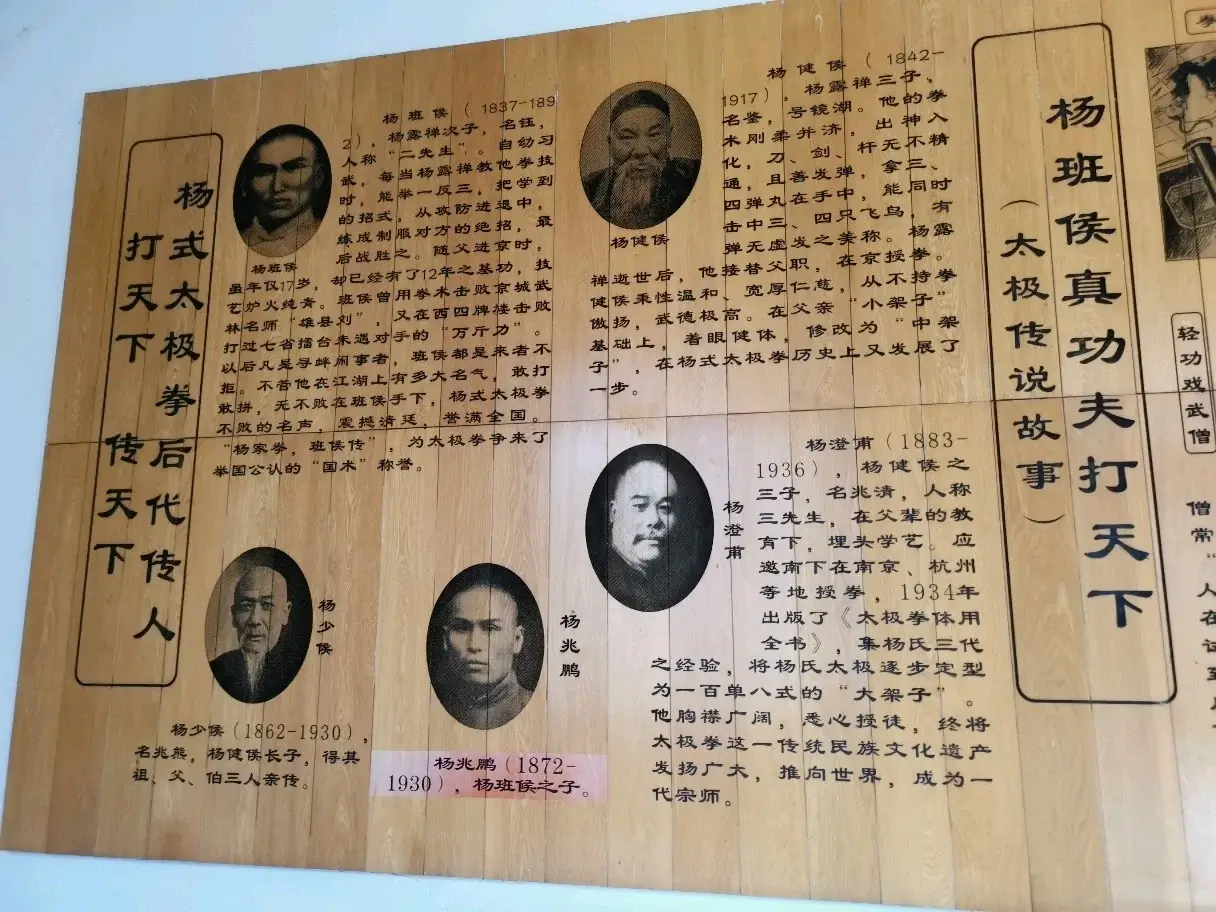 杨式太极拳后代传人
打天下 传天下
杨班侯
杨班侯(1837-189
2),杨露禅次子,名钰,
人称“二先生”。自幼习
武,每当杨露禅教他拳技
时,能举一反三,把学到
的招式,从攻防进退中,
练成制服对方的绝招,最
后战胜之。随父进京时,
虽年仅17岁,却已经有了12年之基功,技
艺炉火纯青。班侯曾用拳术击败京城武
林名师“雄县刘”,又在西四牌楼击败
打过七省擂台未遇对手的“万斤力”。
以后凡是寻衅闹事者,班侯都是来者不
拒。不管他在江湖上有多大名气,敢打
敢拼,无不败在班侯手下,杨式太极拳
不败的名声,震撼清廷,誉满全国。
“杨家拳,班侯传”,为太极拳争来了
举国公认的“国术”称誉。
杨健侯
杨健侯(1842-
1917),杨露禅三子,
名鉴,号镜湖。他的拳
术刚柔并济,出神入
化,刀、剑、杆无不精
通,且善发弹,拿三、
四弹丸在手中,能同时
击中三、四只飞鸟,有
弹无虚发之美称。杨露
禅逝世后,他接替父职,在京授拳。
健侯秉性温和、宽厚仁慈,从不持拳
傲扬,武德极高。在父亲“小架子”
基础上,着眼健体,修改为“中架
子”,在杨式太极拳历史上又发展了
一步。
杨少侯
杨少侯(1862-1930),
名兆熊,杨健侯长子,得其
祖、父、伯三人亲传。
杨兆鹏
杨兆鹏(1872-
1930),杨班侯之子。
杨澄甫
杨澄甫(1883-
1936),杨健侯之
三子,名兆清,人称
三先生,在父辈的教
育下,埋头学艺。应
邀南下在南京、杭州
等地授拳,1934年
出版了《太极拳体用
全书》,集杨氏三代
之经验,将杨氏太极逐步定型
为一百单八式的“大架子”。
他胸襟广阔,悉心授徒,终将
太极拳这一传统民族文化遗产
发扬广大,推向世界,成为一
代宗师。
杨班侯真功夫打天下
(太极传说故事)
轻功戏武僧
僧
常
“
人
在
试